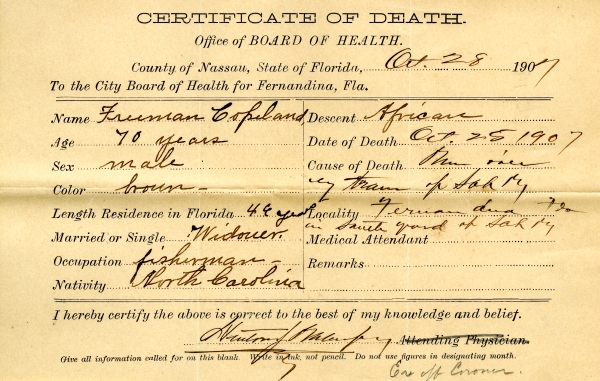 CERTIFICATE OF DEATH.
Office of BOARD OF HEALTH.
County of Nassau, State of Florida, Oct. 28 1907
To the City Board of Health for Fernandina, Fla.
Name Freeman Copeland
Age 70 years
Sex male
Color brown
Length Residence in Florida 48 years
Married or Single Widower
Occupation fisherman
Nativity North Carolina
Descent African
Date of Death Oct. 25 1907
Cause of Death Run over
by train of SAL Ry
Locality Fernandina Fla
in South yard of SAL Ry
Medical Attendant
Remarks
I hereby certify the above is correct to the best of my knowledge and belief.
Attending Physician.
Give all information called for on this blank. Write in ink, not pencil. Do not use figures in designating month.
Ex off Coroner.